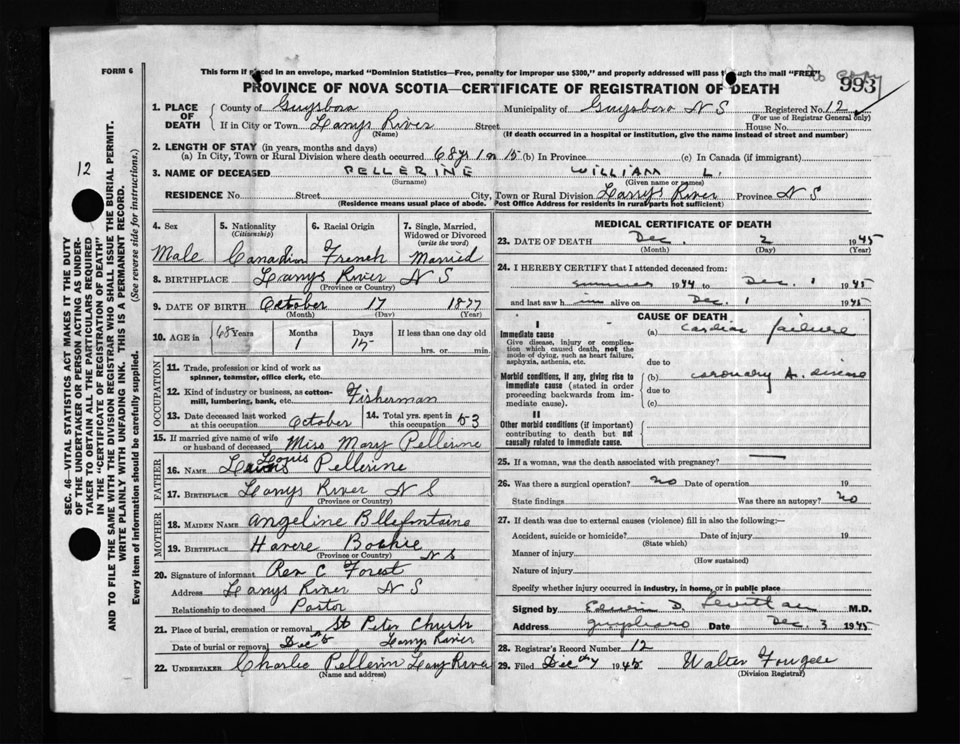 FORM 6
This form if placed in an envelope, marked "Dominion Statistics—Free, penalty for improper use $300," and properly addressed will pass through the mail "FREE"
993
PROVINCE OF NOVA SCOTIA—CERTIFICATE OF REGISTRATION OF DEATH
1. PLACE OF DEATH County of Guysboro Municipality of Guysboro N S Registered No. 12
(For use of Registrar General only)
If in City or Town Larrys River Street House No.
(Name) (If death occurred in a hospital or institution, give the name instead of street and number)
2. LENGTH OF STAY (in years, months and days)
(a) In City, Town or Rural Division where death occurred 68 yrs 1 15 (b) In Province (c) In Canada (if immigrant)
3. NAME OF DECEASED PELLERINE WILLIAM L.
(Surname) (Given name or names)
RESIDENCE No. Street City, Town or Rural Division Larrys River Province N S
(Residence means usual place of abode. Post Office Address for residents in rural parts not sufficient)
4. Sex 5. Nationality (Citizenship) 6. Racial Origin 7. Single, Married, Widowed or Divorced (write the word)
Male Canadian French Married
8. BIRTHPLACE Larrys River N S
(Province or Country)
9. DATE OF BIRTH October 17 1877
(Month) (Day) (Year)
10. AGE in 68 Years Months Days If less than one day old
1 15 hrs. or min.
OCCUPATION
11. Trade, profession or kind of work as spinner, teamster, office clerk, etc.
12. Kind of industry or business, as cotton-mill, lumbering, bank, etc. Fisherman
13. Date deceased last worked at this occupation October 14. Total yrs. spent in this occupation 53
15. If married give name of wife or husband of deceased Miss Mary Pellerine
FATHER
16. NAME Louis Pellerine
17. BIRTHPLACE Larrys River N S
(Province or Country)
MOTHER
18. MAIDEN NAME Angeline Bllefontaine
19. BIRTHPLACE Havere Bochie N S
(Province or Country)
20. Signature of informant Rev C Forest
Address Larrys River N S
Relationship to deceased Pastor
21. Place of burial, cremation or removal St Peter Church
Date of burial or removal Dec Larrys River
22. UNDERTAKER Charlie Pellerin Larry River
(Name and address)
MEDICAL CERTIFICATE OF DEATH
23. DATE OF DEATH Dec. 2 1945
(Month) (Day) (Year)
24. I HEREBY CERTIFY that I attended deceased from:
summer 1944 to Dec. 1 1945
and last saw him alive on Dec. 1 1945
CAUSE OF DEATH
I
Immediate cause (a) cardiac failure
Give disease, injury or complication which caused death, not the mode of dying, such as heart failure, asphyxia, asthenia, etc.
due to
Morbid conditions, if any, giving rise to immediate cause (stated in order proceeding backwards from immediate cause).
(b) coronary A. disease
due to
(c)
II
Other morbid conditions (if important) contributing to death but not causally related to immediate cause.
25. If a woman, was the death associated with pregnancy?
26. Was there a surgical operation? no Date of operation 19
State findings Was there an autopsy? no
27. If death was due to external causes (violence) fill in also the following:—
Accident, suicide or homicide? Date of injury 19
(State which)
Manner of injury
(How sustained)
Nature of injury
Specify whether injury occurred in industry, in home, or in public place
Signed by Edwin D. M.D.
Address Guysboro Date Dec. 3 1945
28. Registrar's Record Number 12
29. Filed Dec 1945 Walter Fougere
(Division Registrar)
12
SEC. 46—VITAL STATISTICS ACT MAKES IT THE DUTY
OF THE UNDERTAKER OR PERSON ACTING AS UNDERTAKER
TO OBTAIN ALL THE PARTICULARS REQUIRED
IN THE "CERTIFICATE OF REGISTRATION OF DEATH"
AND TO FILE THE SAME WITH THE DIVISION REGISTRAR WHO SHALL ISSUE THE BURIAL PERMIT.
WRITE PLAINLY WITH UNFADING INK. THIS IS A PERMANENT RECORD.
Every item of information should be carefully supplied. (See reverse side for instructions.)